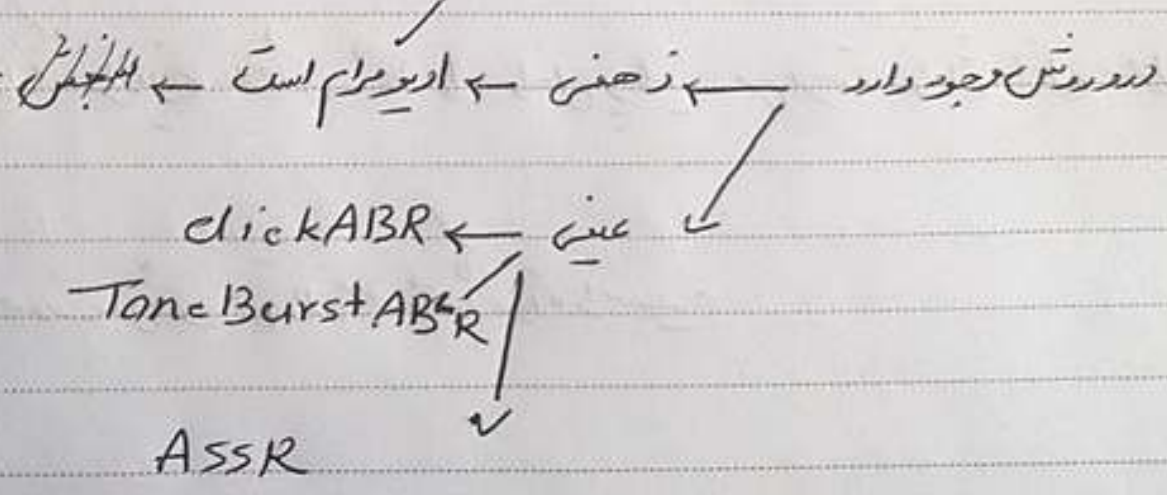 دو روش وجود دارد ← ذهنی ← ادیومرام است ←
عینی ← clickABR
ToneBurst ABR
ASSR